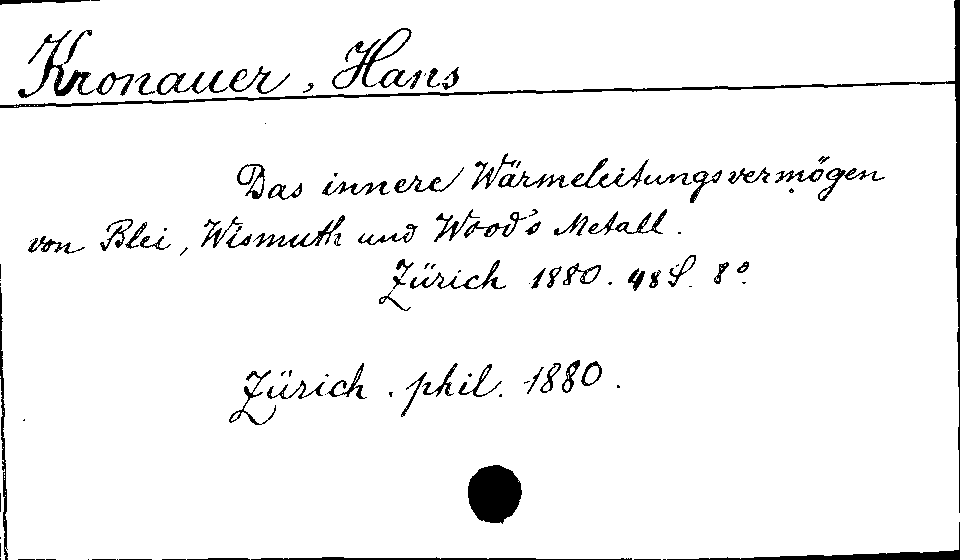 Kronauer, Hans
Das innere Wärmeleitungsvermögen
von Blei, Wismuth und Wood's Metall.
Zürich 1880. 48 S. 8°.
Zürich. phil. 1880.